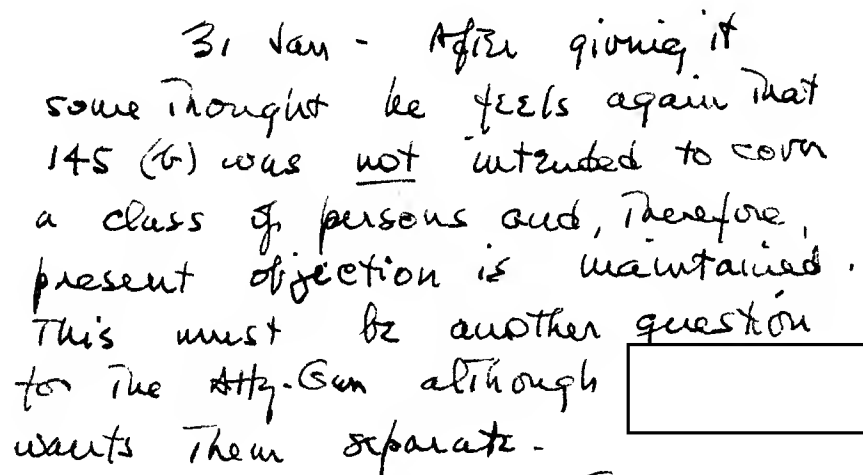 31 Jan - After giving it
some thought he feels again that
145 (b) was not intended to cover
a class of persons and, therefore,
present objection is maintained.
This must be another question
for the Atty-Gen although
wants them separate.